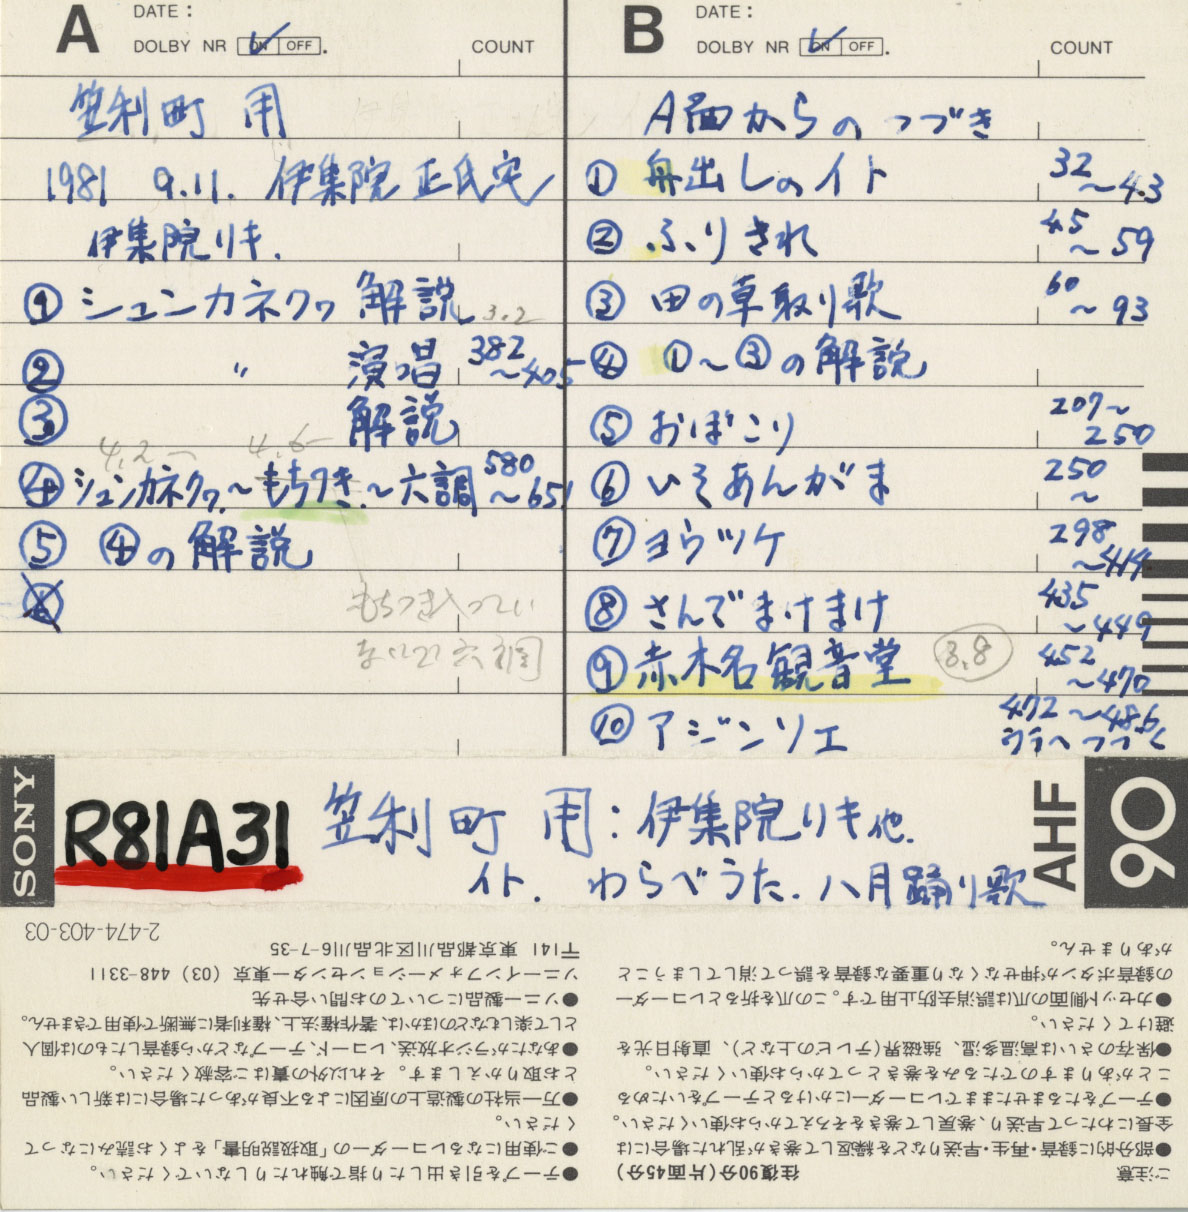 A
DATE :
DOLBY NR ON OFF .
COUNT
笠利町 用
1981 9.11. 伊集院 正氏宅
伊集院リキ.
① シュンカネクヮ 解説 3.2
② 〃 演唱 382〜405
③ 解説
4.2— 4.6—
④ シュンカネクヮ〜もちつき〜六調 580〜651
⑤ ④の解説
B
DATE :
DOLBY NR ON OFF .
COUNT
A面からのつづき
① 舟出しのイト 32〜43
② ふりきれ 45〜59
③ 田の草取り歌 60〜93
④ ①〜③の解説
⑤ おぼこり 207〜250
⑥ いそあんがま 250〜
⑦ ヨウツケ 298〜414
⑧ さんでまけまけ 435〜449
⑨ 赤木名観音堂 3.8 452〜470
⑩ アジンソエ 472〜486
ウラへつづく
SONY
R81A31
笠利町 用:伊集院リキ他.
イト. わらべうた. 八月踊り歌
AHF
90
ご注意 往復90分(片面45分)
●部分的に録音・再生・早送りなどを繰返して巻きが乱れた場合には
全長にわたって早送り、巻戻して巻きをそろえてからお使いください。
●テープをたるませたままでレコーダーにかけるとテープをいためる
ことがありますのでたるみを巻きとってからお使いください。
●保存のさいは高温多湿、強磁界(テレビの上など)、直射日光を
避けてください。
●カセット側面の爪は誤消去防止用です。この爪を折るとレコーダー
の録音ボタンが押せなくなり重要な録音を誤って消してしまうこと
がありません。
●テープを引き出したり指で触れたりしないでください。
●ご使用になるレコーダーの「取扱説明書」をよくお読みになって
ください。
●万一当社の製造上の原因による不良があった場合には新しい製品
とお取りかえします。それ以外の責はご容赦ください。
●あなたがラジオ放送、レコード、テープなどから録音したものは個人
として楽しむなどのほかは、著作権法上、権利者に無断で使用できません。
●ソニー製品についてのお問い合せ先
ソニーインフォメーションセンター東京 (03) 448-3311
〒141 東京都品川区北品川6-7-35
2-474-403-03